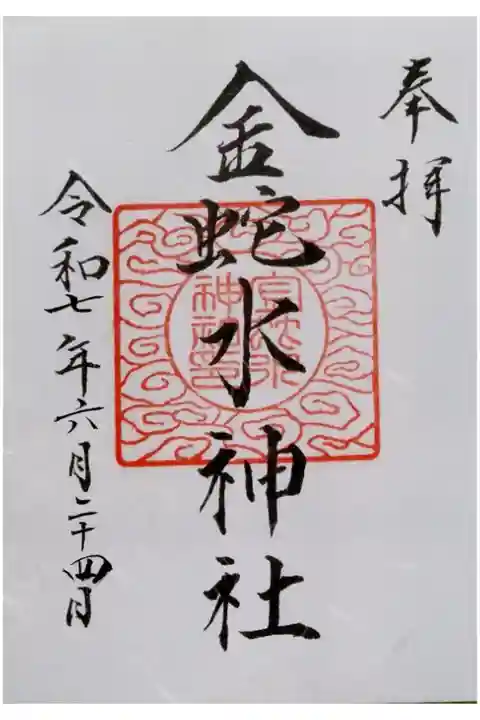 奉拝
金蛇水神社
令和七年六月二十四日